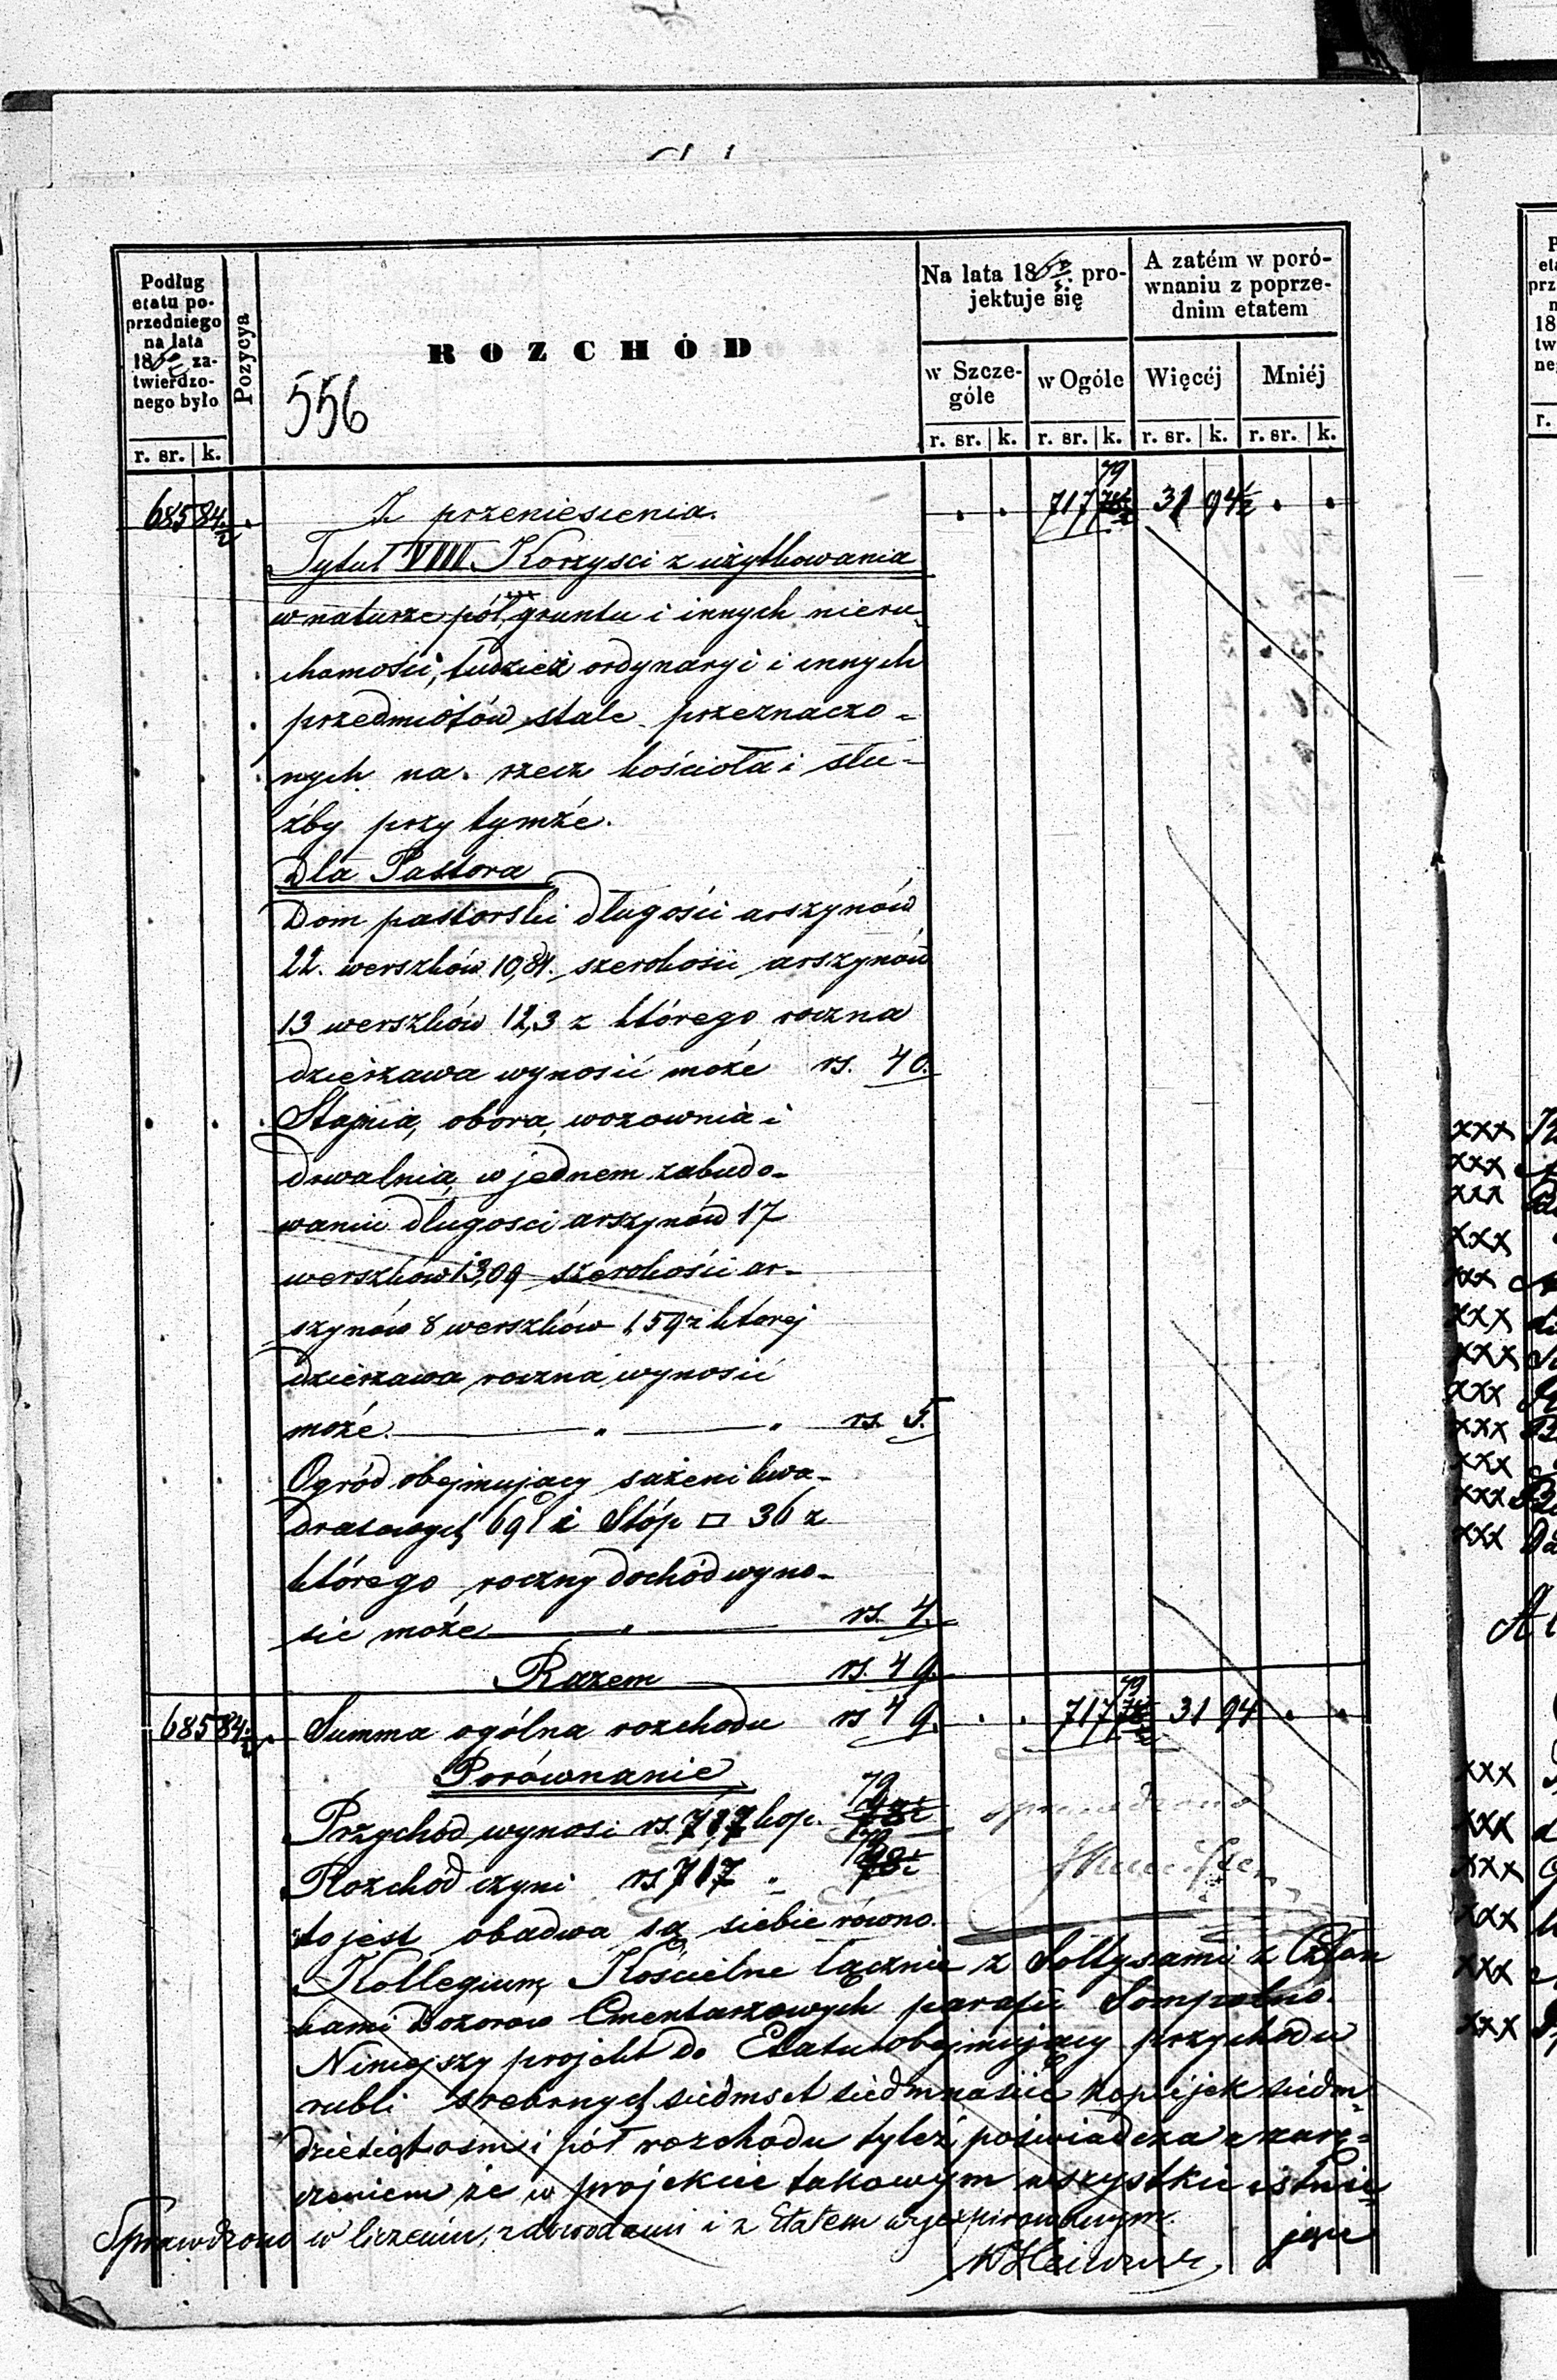 Podług
etatu po-
przedniego
na lata
18 za-
twierdzo-
nego było
Pozycya
ROZCHÓD
556
Na lata 18 pro-
jektuje się
A zatém w poró-
wnaniu z poprze-
dnim etatem
w Szcze-
góle
w Ogóle
Więcéj
Mniéj
r. sr. k.
r. sr. k. r. sr. k. r. sr. k. r. sr. k.
79
685 84½ Z przeniesienia. 717 78½ 31 94½
Tytuł VIII Korzysci z użytkowania
w naturze pól, gruntu i innych nieru-
chomości, tudzież ordynaryi i innych
przedmiotów stale przeznaczo-
nych na rzecz kościoła i słu-
żby przy tymże.
Dla Pastora
Dom pastorski długości arszynów
22. werszków 10,84. szerokości arszynów
13 werszków 12,3 z którego roczna
dzierzawa wynosić może rs. 40.
Stajnia, obora, wozownia i
drwalnia w jednem zabudo-
waniu długosci arszynów 17
werszków 13,09 szerokości ar-
szynów 8 werszków 1,59 z której
dzierzawa roczna wynosić
może. " " rs. 5.
Ogród obejmujący sażeni kwa-
dratowych 691 i Stóp □ 36 z
którego roczny dochód wyno-
sić może " rs. 4.
Razem rs. 49.
79
685 84½ Summa ogólna rozchodu rs 49. 717 78½ 31 94
Porównanie
Przychód wynosi rs. 717 kop. 79 78½
Rozchód czyni rs 717 " 79 78½
to jest obadwa są siebie równo.
Kollegium Kościelne łącznie z Sołtysami z Człon
kami Dozorów Cmentarzowych parafii Sompolno.
Niniejszy projekt do Etatu obejmujący przychodu
rubli srebrnych siedmset siedmnaście kopijek siedm
dziesiąt ośm i pół rozchodu tyleż, poświadcza z zarę-
czeniem że w projekcie takowym wszystkie istnie
jące
Sprawdzono w liczeniu, z dowodami i z Etatem wyexpirowanym.